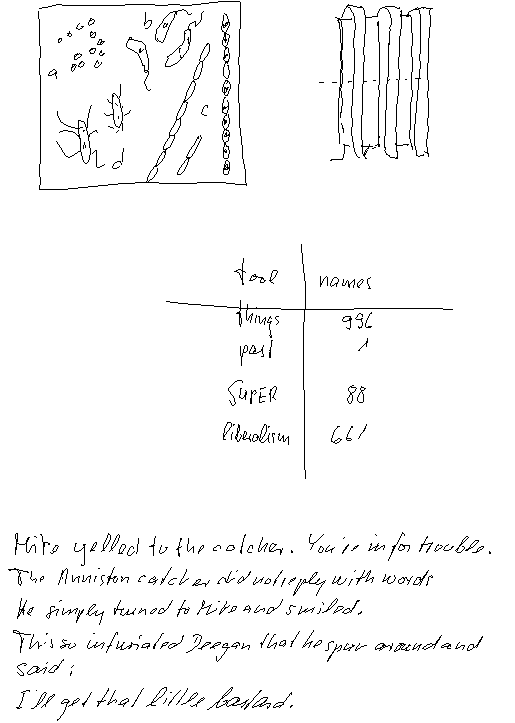 a
b
c
d
tool names
things 996
past 1
SUPER 88
liberalism 661
Mike yelled to the catcher. You're in for trouble.
The Anniston catcher did not reply with words
He simply turned to Mike and smiled.
This so infuriated Deegan that he spun around and
said:
I'll get that little bastard.